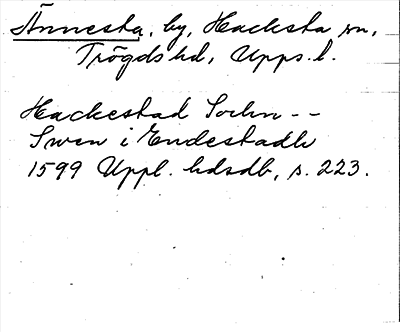 Ännesta, by, Hacksta sn,
Trögds hd, Upps. l.
Hackestad Sochn - -
Swen i Endestadh
1599 Uppl. hdsdb, s. 223.